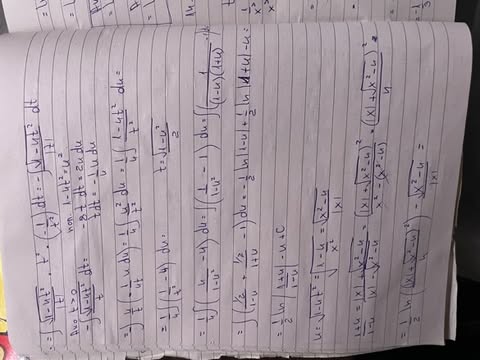 = ∫ √(1-4t²)/|t| · t² · (-1/t²) dt = -∫ √(1-4t²)/|t| dt
Άνο t>0 θέτ. 1-4t² = u²
-∫ √(1-4t²)/t dt = -8t dt = 2u du
t dt = -1/4 u du
= ∫ u/t (-1/4t u du) = 1/4 ∫ u²/t² du = 1/4 ∫ (1-4t²)/t² du =
= 1/4 ∫ (1/t² - 4) du = t = √(1-u²)/2
= 1/4 ∫ (4/(1-u²) - 4) du = ∫ (1/(1-u²) - 1) du = ∫ (1/((1-u)(1+u)) - 1) du
= ∫ (1/2/(1-u) + 1/2/(1+u) - 1) du = -1/2 ln|1-u| + 1/2 ln|1+u| - u =
= 1/2 ln |(1+u)/(1-u)| - u + C
u = √(1-4t²) = √(1-4/x²) = √(x²-4)/|x|
(1+u)/(1-u) = (|x| + √(x²-4))/(|x| - √(x²-4)) = (|x| + √(x²-4))²/(x² - (x²-4)) = (|x| + √(x²-4))²/4
= 1/2 ln ((|x| + √(x²-4))²/4) - √(x²-4)/|x| =